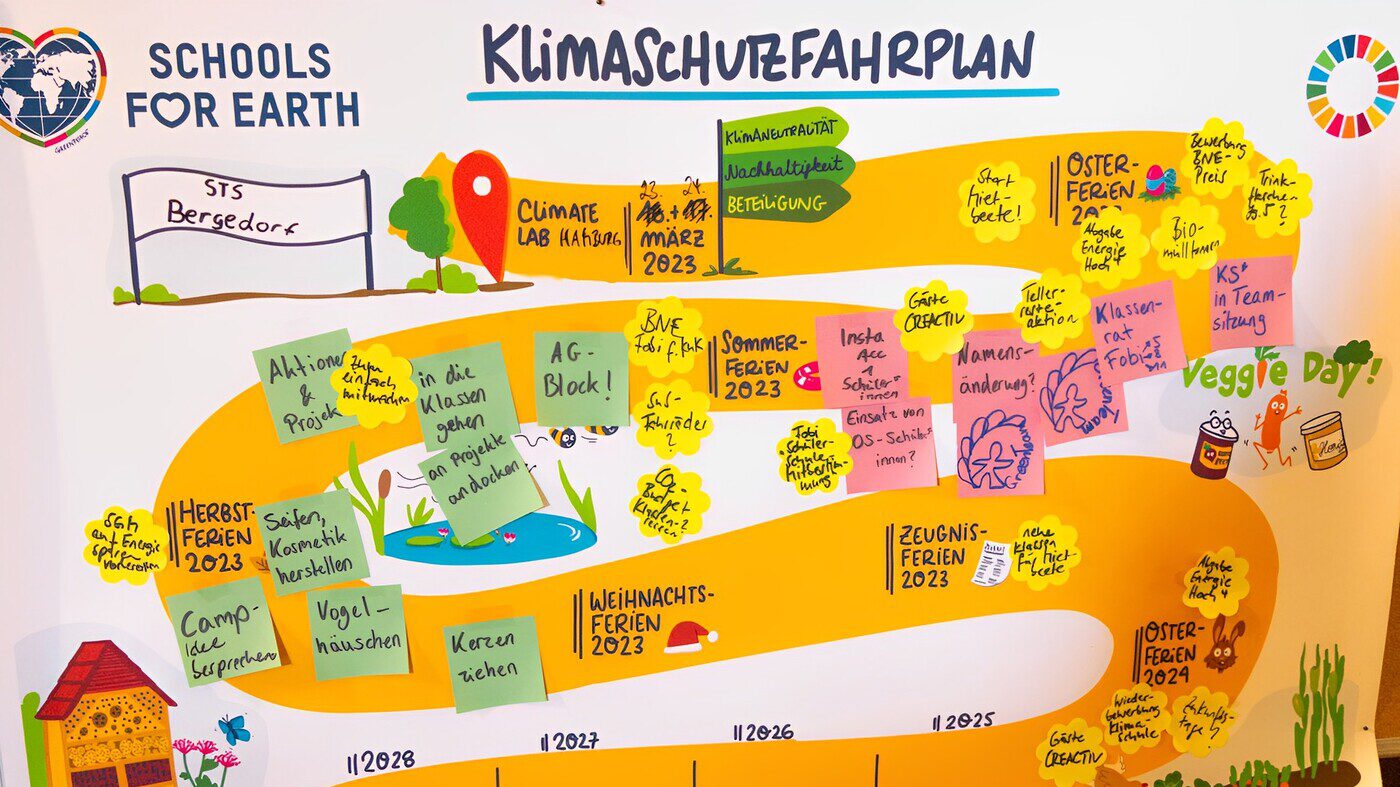 KLIMASCHUTZFAHRPLAN
SCHOOLS
FOR EARTH
GREENPEACE
STS
Bergedorf
CLIMATE
LAB HAMBURG
23. 24.
MÄRZ
2023
KLIMANEUTRALITÄT
Nachhaltigkeit
BETEILIGUNG
Start
Hiet-
beete!
OSTER-
FERIEN
Bewerbung
BNE-
Preis
Trink-
flaschen
Jg. 5?
Abgabe
Energie
Hoch 4
Bio-
mülltonnen
KS*
in Team-
sitzung
Teller-
reste-
aktion
Klassen-
rat
Fobi
Gäste
CREACTIV
Namens-
änderung?
Insta
Acc
Schüler*
innen
Einsatz von
OS-Schüler*
innen?
SOMMER-
FERIEN
2023
BNE
Fobi f. Kuk
SuS-
Fahrräder
?
CO₂-
Budget
Klassen-
reisen?
Fobi
Schüler-
Schule
Mitbestim-
mung
GreenTeam
GreenTeam
AG-
Block!
in die
Klassen
gehen
an Projekte
andocken
Aktionen
&
Projek
zum
einfach
mitmachen
Veggie Day!
Honig
HERBST-
FERIEN
2023
auf Energie
sparen
vorbereiten
Seifen,
Kosmetik
herstellen
Camp-
Idee
besprechen
Vogel-
häuschen
Kerzen
ziehen
WEIHNACHTS-
FERIEN
2023
ZEUGNIS-
FERIEN
2023
neue
Klassen
für Hiet-
beete
Abgabe
Energie
Hoch 4
OSTER-
FERIEN
2024
Wieder-
bewerbung
Klima-
schule
Zukunfts-
tage?
Gäste
CREACTIV
2025
2026
2027
2028